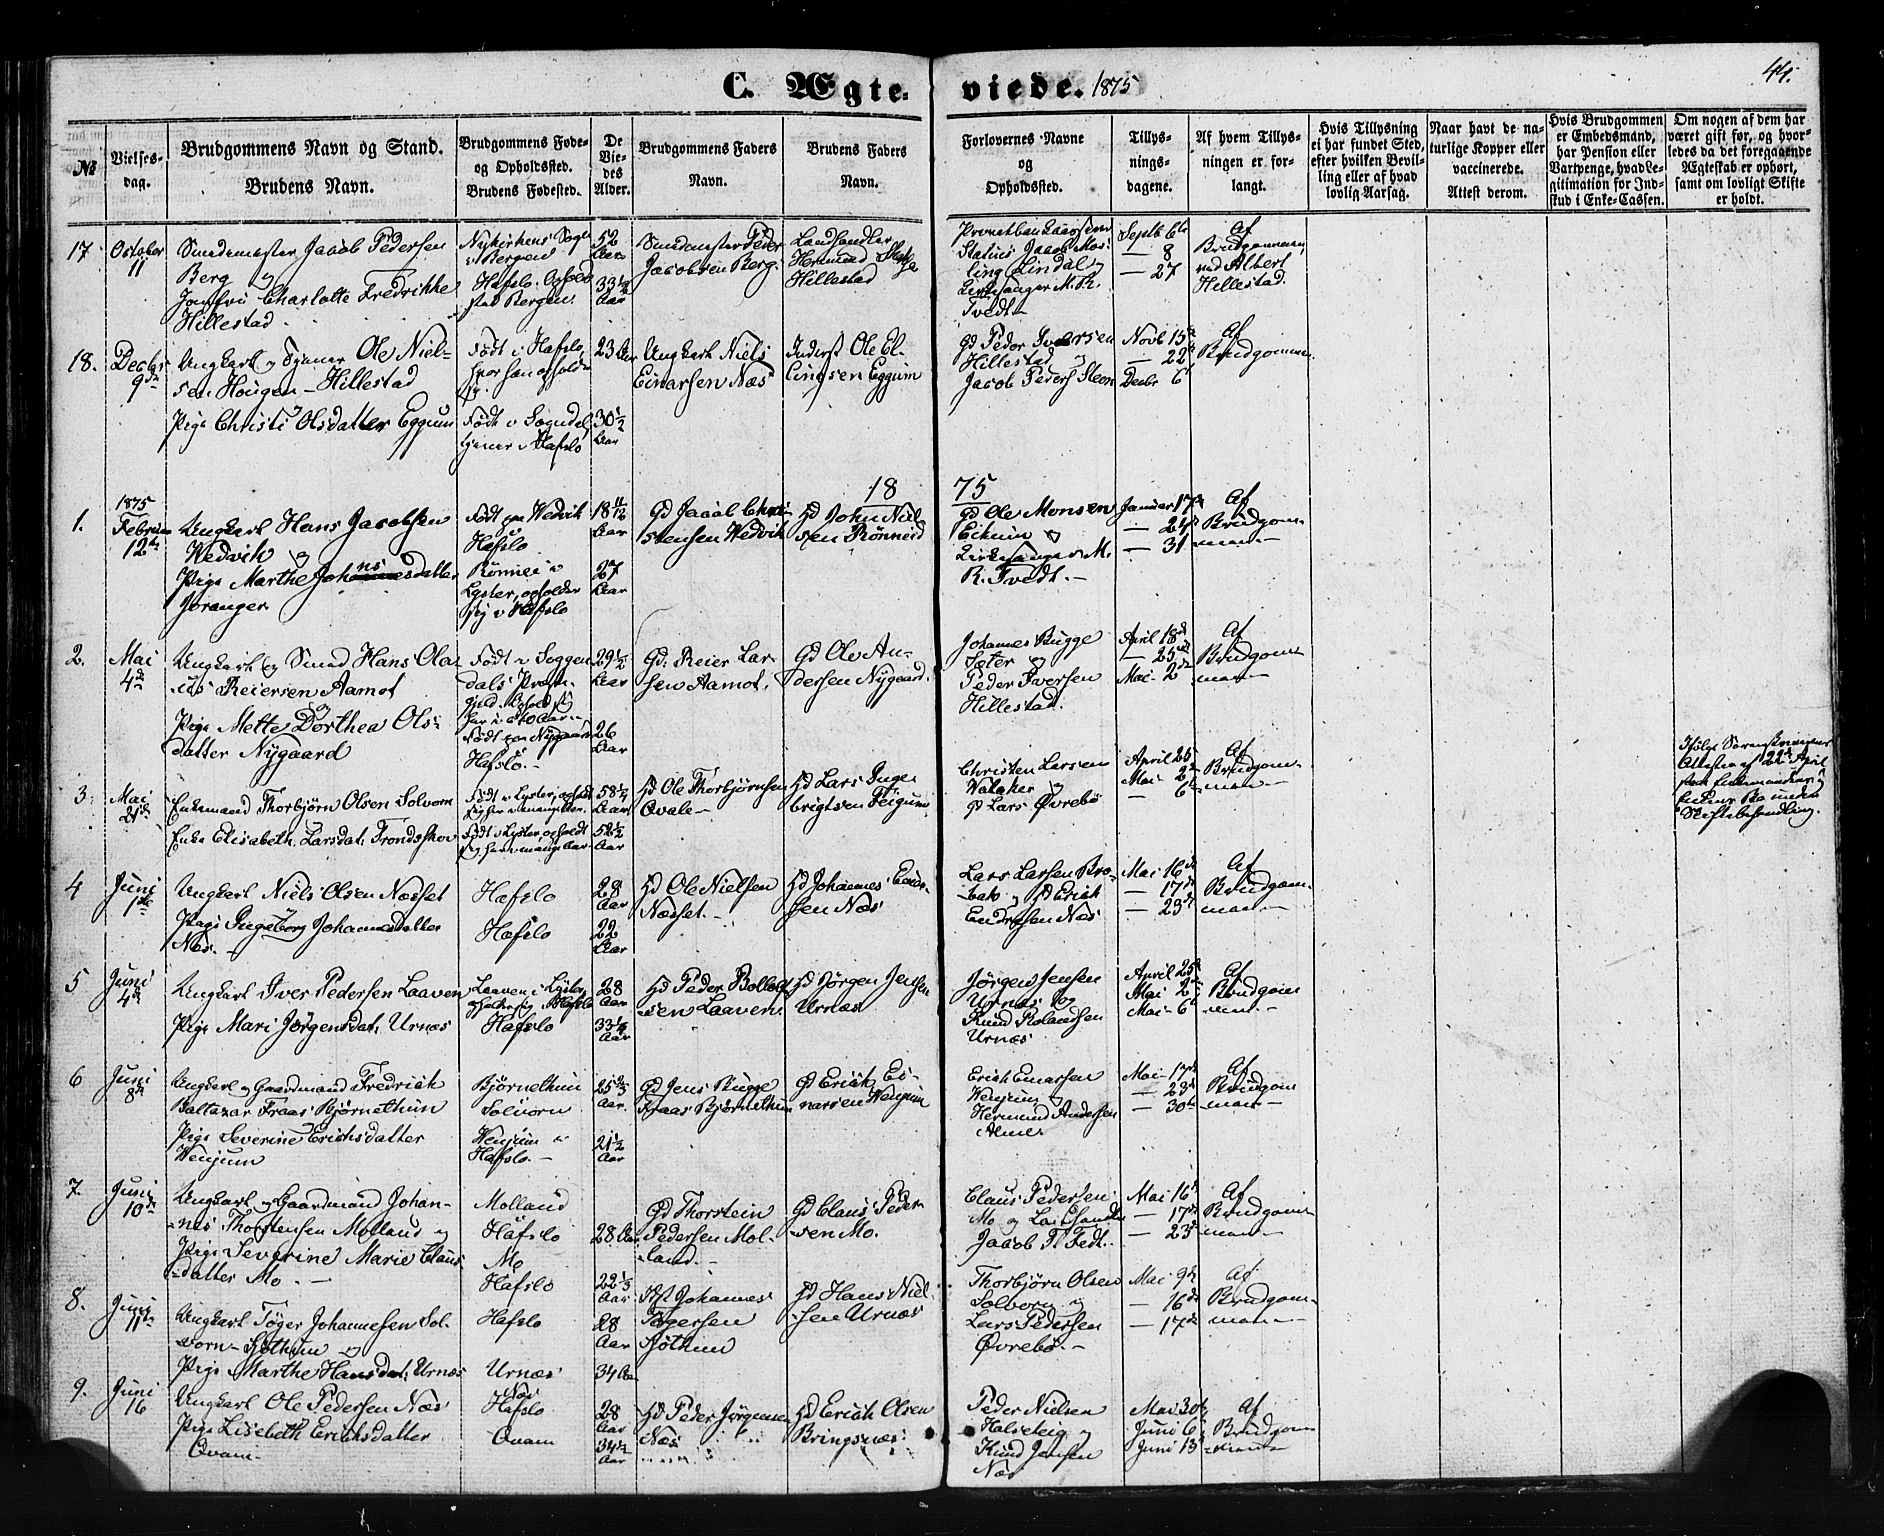 C. Ægte- viede. 1875
44.
№
Vielses-
dag.
Brudgommens Navn og Stand.
Brudens Navn.
Brudgommens Føde-
og Opholdssted.
Brudens Fødested.
De
Vie-
des
Alder.
Brudgommens Faders
Navn.
Brudens Faders
Navn.
Forlovernes Navne
og
Opholdssted.
Tillys-
nings-
dagene.
Af hvem Tillys-
ningen er for-
langt.
Hvis Tillysning
ei har fundet Sted,
efter hvilken Bevil-
ling eller af hvad
lovlig Aarsag.
Naar havt de na-
turlige Kopper eller
vaccinerede.
Attest derom.
Hvis Brudgommen
er Embedsmand,
har Pension eller
Vartpenge, hvad Le-
gitimation for Ind-
skud i Enke-Cassen.
Om nogen af dem har
været gift før, og hvor-
ledes da det foregaaende
Ægteskab er ophørt,
samt om lovligt Skifte
er holdt.
17.
October
11
Smedemester Jacob Pedersen
Berg og
Jomfru Charlotte Fredrikke
Hillestad
Nykirkens Sogn
i Bergen
Hafslo. Ophold
sted Bergen
52
Aar
33½
Aar
Smedemester Peder
Jacobsen Berg.
Landhandler
Hermund
Hillestad
Jacob Mos-
ling Lindal og
Kirkesanger M. R.
Tvedt
Septb 6te
— 8
— 27
Af
Brudgommen
ved Albert
Hillestad.
18.
Decbr
9de
Ungkarl og Tjener Ole Niel-
sen Hougen-Hillestad
og
Pige Christi Olsdatter Eggum
Født i Hafslo,
hvor han opholder
sig
Født i Sogndal,
tjener i Hafslo
23 Aar
30½
Aar
Ungkarl Niels
Einarsen Næs
Inderst Ole El-
lingsen Eggum
Gd Peder Iversen
Hillestad og
Jacob Peders Steen
Novb 15de
— 22
Decbr 6
Af
Brudgommen
18 75
1.
1875
Februar
12te
Ungkarl Hans Jacobsen
Wedvik og
Pige Marthe Johannesdatter
ns
Joranger
Født paa Wedvik
Hafslo
Rønnei i
Lyster, opholder
sig i Hafslo
18 11/12
Aar
27
Aar
Gd Jacob Chri-
stensen Wedvik
Hd John Niel-
sen Rønneid
Gd Ole Monsen
Eikum og
Kirkesanger M.
R. Tvedt.—
Januar 17de
— 24
— 31
Af
Brudgom-
men—
2.
Mai
4de
Ungkarl og Smed Hans Ola-
us Reiersen Aamot
og
Pige Mette Dorthea Ols-
datter Nygaard
Født i Soggen-
dals Præste-
gjeld. Ophold sig
her i 10 Aar.—
Født paa Nygaard
Hafslo.—
29½
Aar
26
Aar
Gd. Reier Lar-
sen Aamot.
Gd Ole An-
dersen Nygaard.
Johannes Bugge
Sæter og
Peder Iversen
Hillestad.
April 18de
— 25de
Mai 2den
Af
Brudgom-
men—
3.
Mai
21de
Enkemand Thorbjørn Olsen Solvorn
Enke Elisabeth Larsdat. Trondsskov
Født i Lyster, opholdt
sig her i mange Aar.
Født i Lyster, opholdt
sig her i mange Aar
58¼
Aar
52½
Aar
Hd Ole Thorbjørnsen
Qvale—
Hd Lars Inge-
brigtsen Feigum
Christen Larsen
Walaker og
Gd Lars Øvrebø
April 25
Mai 2den
— 6te
Af
Brudgom-
men—
Ifølge Sorenskriverens
Attest af 22de April
Skiftebehandling.
4
Juni
1ste
Ungkarl Niels Olsen Næsset
Pige Ingeborg Johannesdatter
Næs.—
Hafslo
Hafslo
28
Aar
22
Aar
Hd Ole Nielsen
Næsset.—
Hd Johannes Endre-
sen Næs
Lars Larsen Bro-
bak og Hd Erich
Endresen Næs
Mai 16de
— 17de
— 23de
Af
Brudgom-
men—
5
Juni
4de
Ungkarl Iver Pedersen Laaven
Pige Mari Jørgensdat. Urnæs
Laaven i Lyster,
opholder sig i Hafslo
Hafslo
28
Aar
33¼
Aar
Hd Peder Bottolf-
sen Laaven.
Hd Jørgen Jensen
Urnæs
Jørgen Jensen
Urnæs og
Knud Rolandsen
Urnæs
April 25de
Mai 2den
Mai 6te
Af
Brudgom-
men—
6
Juni
8de
Ungkarl og Gaardmand Fredrich
Baltazar Fraas Bjørnethun
og
Pige Severine Erichsdatter
Wenjum
Bjørnethun
Solvorn
Wenjum i
Hafslo.—
25⅔
Aar.
21½
Aar
Gd Jens Bugge
Fraas Bjørnethun
Gd Erich Ei-
narsen Wenjum
Erich Einarsen
Wenjum og
Hermund Andersen
Alme
Mai 17de
— 23de
— 30te
Af
Brudgom-
men—
7.
Juni
10de
Ungkarl og Gaardmand Johan-
nes Thorstensen Molland og
Pige Severine Marie Claus-
datter Mo.—
Molland
Hafslo
Mo
Hafslo
28 Aar
22⅓
Aar
Gd Thorstein
Pedersen Mol-
land.—
Gd Claus Peder-
sen Mo.
Claus Pedersen
Mo og Landhandler
Jacob T. Fedt.
Mai 16de
— 17de
— 23de
Af
Brudgom-
men—
8.
Juni
11te
Ungkarl Tøger Johannesen Sol-
vorn-Kjøthun og
Pige Marthe Hansdat. Urnæs
Hafslo
Urnæs
28
Aar
34 Aar
Johannes
Tøgersen
Kjøthun
Hd Hans Niel-
sen Urnæs
Thorbjørn Olsen
Solvorn og
Lars Pedersen
Øvrebø.—
Mai 9de
— 16de
— 17de
Af
Brudgom-
men—
9.
Juni
16
Ungkarl Ole Pedersen Næs
Pige Lisebeth Erichsdatter
Qvam
Næs
Hafslo
Qvam
28
Aar
34½
Aar
Hd Peder Jørgensen
Næs
Hd Erich Olsen
Bringsnæs
Peder Nielsen
Halsteig og
Knud Jensen
Næs
Mai 30te
Juni 6te
Juni 13
Af
Brudgom-
men—